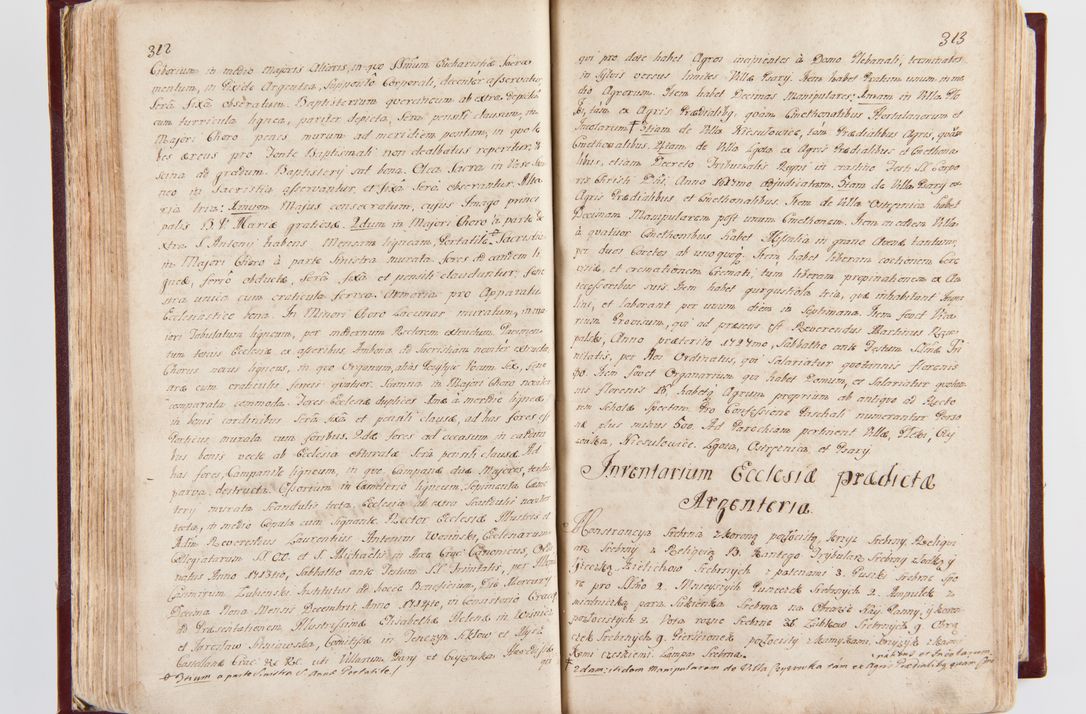 312
Ciborium in medio Majoris Altaris, in quo SSmum Eucharistiæ Sacra
mentum, in Pixide Argentea, supposito Corporali, decenter asservatur
Serâ fixâ obseratum. Baptisterium querceum ab extra depictum
cum turricula lignea, pariter depicta, Serâ pensili clausum, in
Majori Choro penes murum ad meridiem positum, in quo le
bes æreus pro Fonte Baptismali non dealbatus reperitur,
ad gradum. Baptistery sat bona. Olea Sacra in Vase
neo in Sacristia asservantur, et fixâ Serâ obserantur. Alta
ria tria: Unum Majus consecratum, cujus Imago princi
palis B. V. Mariæ gratiosæ. 2dum in Majori Choro à parte
xtra S. Antony habens Mensam ligneam, Portatile. Sacristia
in Majori Choro à parte sinistra murata fores ad eandem li
gneæ, ferrô obductæ, Serâ fixâ et pensili clauduntur, fene
stra unica cum craticula ferrea. Armaria pro Apparatu
Ecclesiastico bona. In Minori Choro Lacunar muratum, in ma
jori Tabulatum ligneum, per modernum Rectorem extructum, Pavimen
tum totius Ecclesiæ ex asseribus, Ambona ad Sacristiam noviter extructa,
Chorus novus ligneus, in quo Organum, alias Pozytyw Vocum sex, fene
stræ cum craticulis ferreis quatuor. Scamna in Majori Choro noviter
comparata commoda. Fores Ecclesiæ duplices Unæ à meridie ligneæ,
in bonis cardinibus Serâ fixâ et pensili clausæ, ad has fores est
Porticus murata cum foribus. 2dæ fores ad occasum in cardini
bus bonis vecte ab Ecclesia obturatæ Serâ pensili clausæ. Ad
has fores, Campanile ligneum, in quo Campanæ duæ Majores, tertia
parva destructa. Ossarium in Cæmeterio ligneum, Sepimenta Cæme
tery murata Scandulis tecta, Ecclesia ab extra Scandulis noviter
tecta, in medio Cupula cum Signante. Rector Ecclesiæ Illustris et
Adm. Reverendus Laurentius Antonius Wosinski, Ecclesiarum
Collegiatarum SS. OO. et S. Michaëlis in Arce Crac: Canonicus, Ordi
natus Anno 1713tio, Sabbatho ante Festum SS. Trinitatis, per Illmum
Casimirum Łubienski. Institutus ad hocce Beneficium, Die Mercury
Decima Nona Mensis Decembris, Anno 1714to, in Consistorio Crac:
ad Præsentationem Illustrissimæ Elisabethæ Helenæ in Wisnicz
et Jaroslaw Sieniawska, Comitissæ in Tenczyn Sklow et Mysz
Castellanæ Crac: &c &c. uti Villarum Psary et Czyzowka Hæredissæ
qui
✠ Unum a parte sinistra S. Annæ Portatile.

313
qui pro dote habet Agros incipientes à Domo Plebanali, terminatos
in Sylvis versus limites Villæ Psary. Item habet Pratum unum in me
dio Agrorum. Item habet Decimas Manipulares, Imam in Villa Plo
ki, tam ex Agris Prædialibq, quam Cmethonalibus Hortulanorum et
Incolarum ✠ 3tiam de Villa Niesulowice, tam Prædialibus Agris, quam
Cmethonalibus. 4tam de Villa Lgota ex Agris Prædialibus et Cmethona
libus, etiam Decreto Tribunalis Regni in crastino Festi SS. Corpo
ris Christi Dni, Anno 1627mo adjudicatam. 5tam de Villa Psary ex
Agris Prædialibus et Cmethonalibus. Item de Villa Ostrzenica habet
Decimam Manipularem post unum Cmethonem. Item in eadem Villa
à quatuor Cmethonibus habet Missalia in grano Avenæ tantum,
per duos Coretos ab unoquoq. Item habet liberam coctionem Cere
visiæ, et cremationem Cremati, tum liberam propinationem ex An
tecessoribus suis. Item habet gurgustiola tria, quæ inhabitant Inqui
lini, et laborant per unum diem in Septimana. Item fovet Vica
rium Provisum, qui ad præsens est Reverendus Martinus Rzym
palski, Anno præterito 1727mo, Sabbatho ante Festum SSmæ Tri
nitatis, per Nos Ordinatus, qui Salariatur quotannis florenis
80. Item fovet Organarium qui habet Domum, et Salariatur quotan
nis florenis 16, habetq Agrum proprium ab antiquo ad Recto
rem Scholæ spectans. Pro Confessione Paschali numerantur Perso
næ plus minus 600. Ad Parochiam pertinent Villæ, Ploki, Czy
zowka, Niesulowice. Lgota, Ostrzenica, et Psary.
Inventarium Ecclesiæ prædictæ
Argenteria.
Monstrancya Srebrna z Koroną pozłocistą, Krzyz Srebrny, Reliqui
arz Srebrny z Reliquią B. Kantego, Trybularz Srebrny Łodką y
Łyzeczką, Kielichow Srebrnych z patenami 3. Puszki Srebrne Spo
re pro SSmo 2. Mnieyszych Puszeczek Srebrnych 2. Ampulek z
miedniczką para. Sukienka Srebrna na Obrazie Nay: Panny, y koron
pozłocistych 2. Vota rozne Srebrne 36. Ząbkow Srebrnych 9. Obrą
czek Srebrnych 9. Pierscionek pozłocisty z kamykami, Krzyzyk z kamy
kami czeskiemi. Lampa Srebrna.
✠ 2dam: itidem Manipularem de Villa Czyzowka tam ex Agris Prædialibq quam Cme
nalibus et Incolarum.